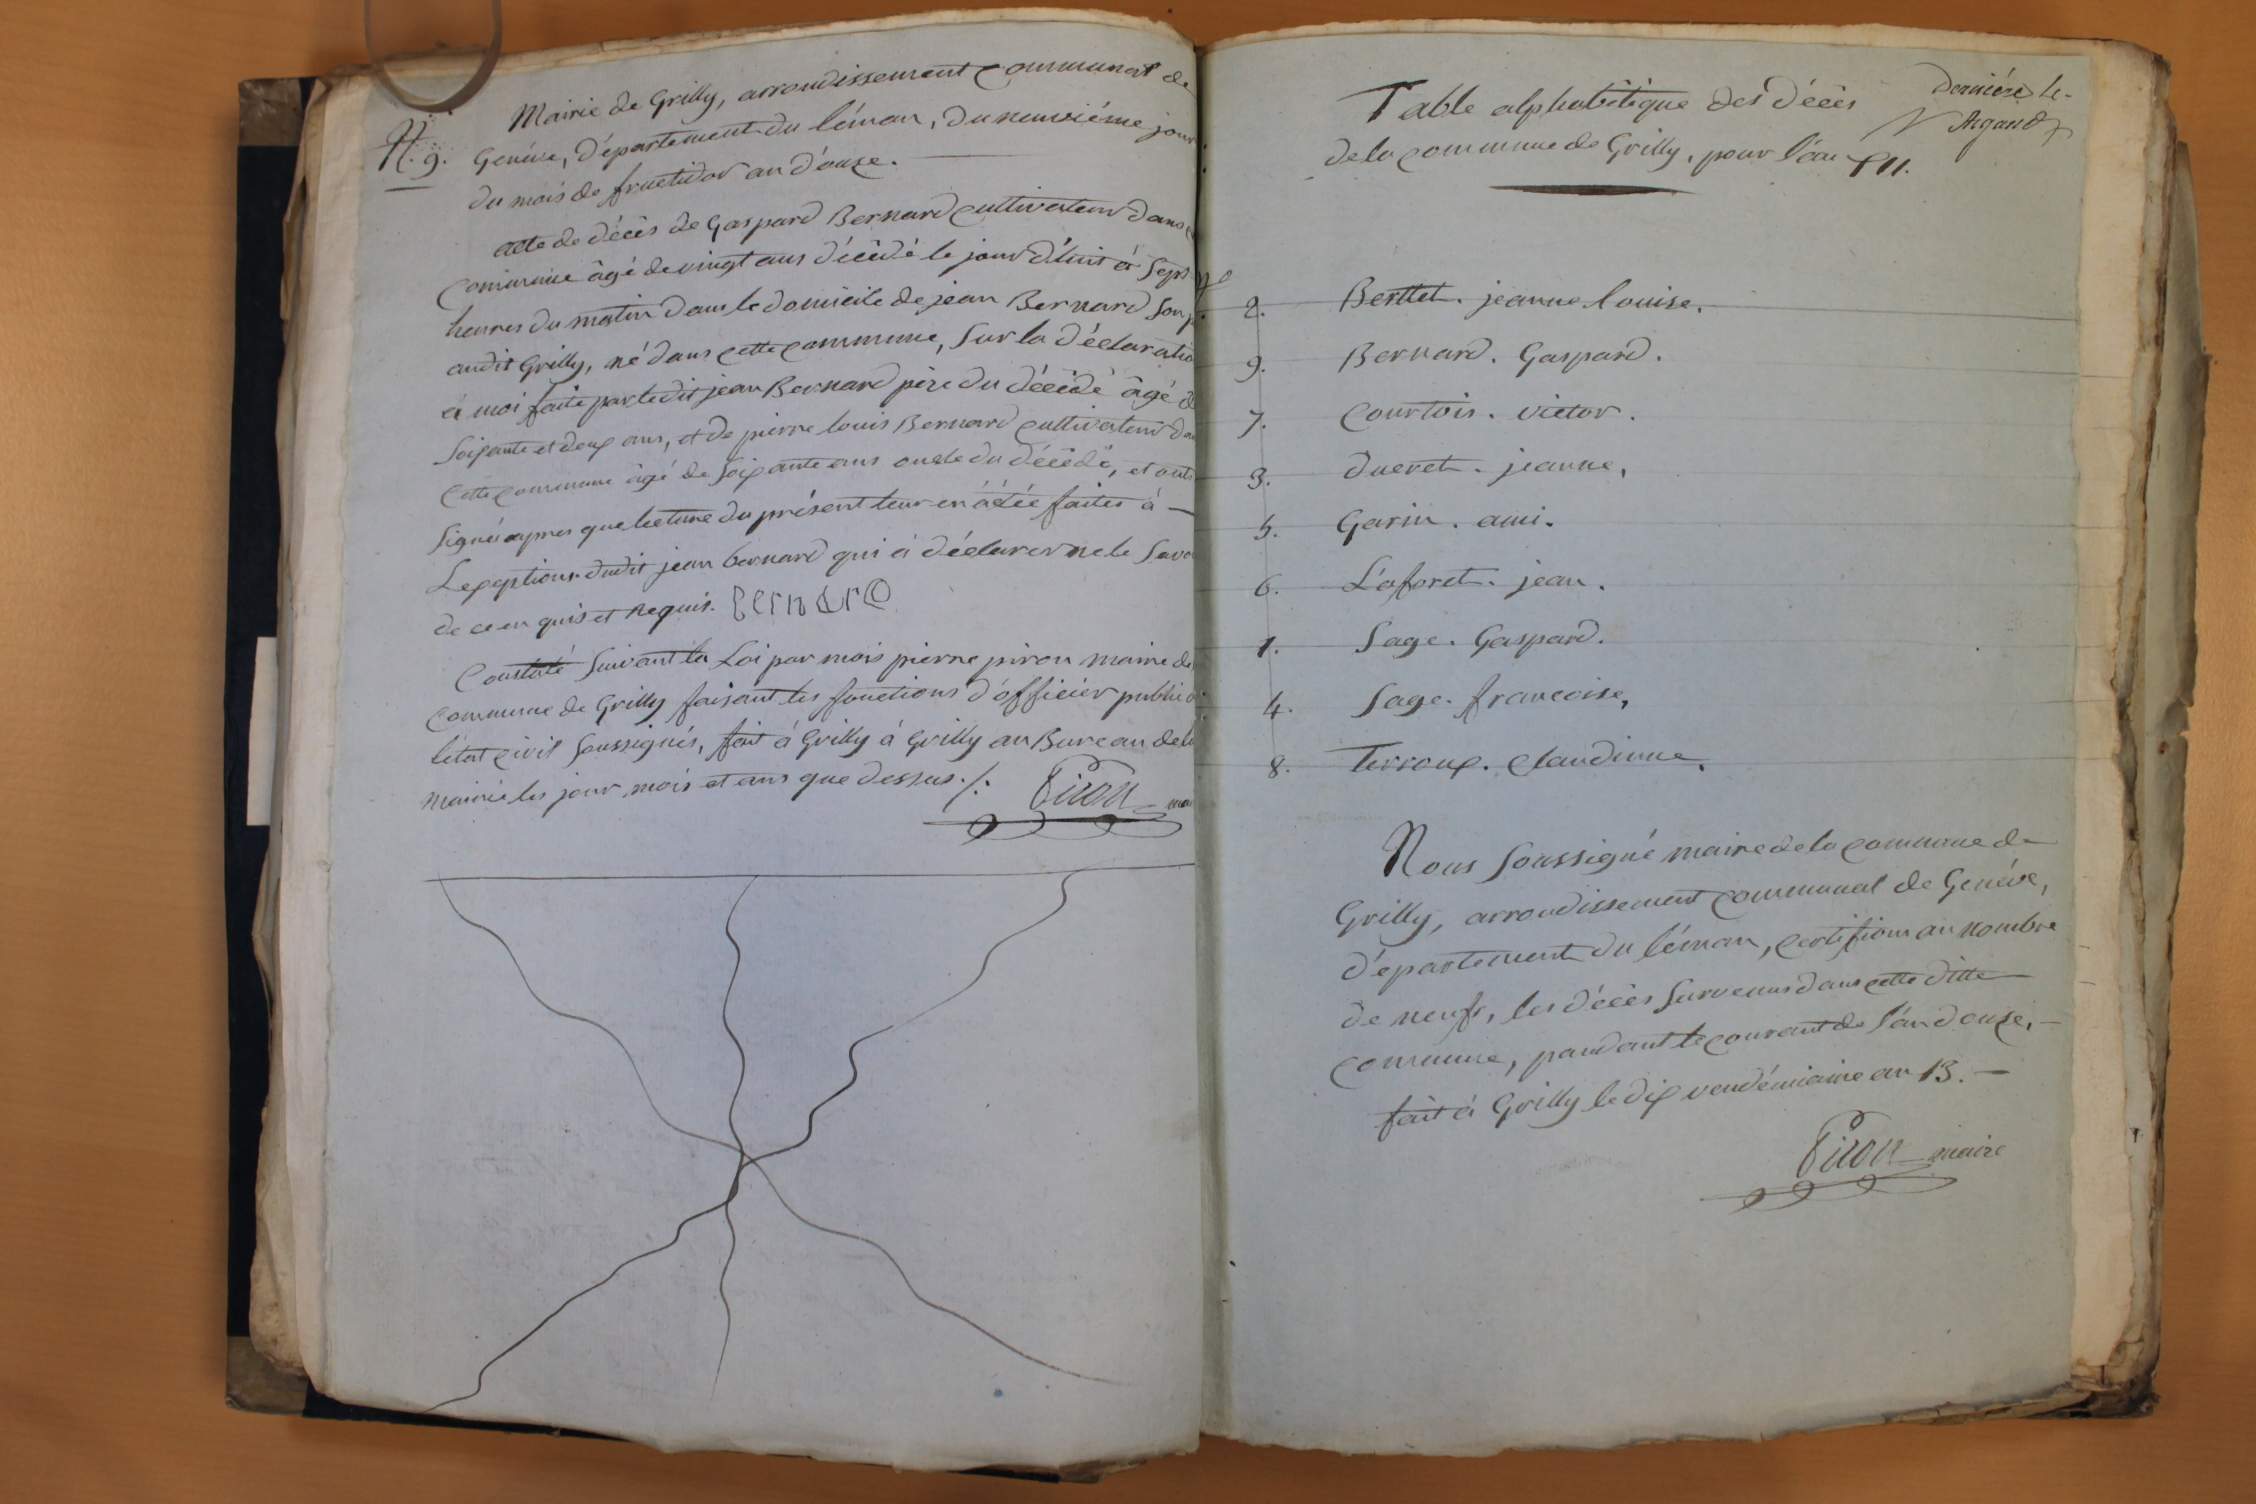 N.° 9.
Mairie de Grilly, arrondissement Communal de
Genéve, d'épartement du léman, du neuviéme jour
du mois de fructidor an d'ouze.
acte de décès de Gaspard Bernard cultivateur dans
Commune âgé de vingt ans décédé le jour d'hui à Sept
heures du matin dans le domicile de jean Bernard Son
audit Grilly, né dans cette commune, Sur la d'éclaratio
à moi faite par ledit jean Bernard pére du décédé âgé d
Soixante et deux ans, et de pierre louis Bernard cultivateur da
cette commune âgé de Soixante ans oncle du décédé, et ont
Signé apres que lecture du présent leur en à étée faites à —
Lexception dudit jean bernard qui à déclarer ne le Savo
de ce en quis et Requis. Bernard
Constaté Suivant la Loi par mois pierre piron maire de
Commune de Grilly faisant les fonctions d'officier public
létat civil Soussignés, fait à Grilly à Grilly au Bureau de la
Mairie les jour mois et ans que dessus ./.
Piron mai
Derniére
Argand
Table alphabétique des décès
de la commune de Grilly, pour l'an XII.
2. Berttet. jeanne louise.
9. Bernard. Gaspard.
7. Courtois. victor.
3. Ducret. jeanne,
5. Garin. ami.
6. L'aforet. jean.
1. Sage. Gaspard.
4. Sage. francoise,
8. Terroux. claudinne.
Nous Soussigné maire de la commune de
Grilly, arrondissement communal de Genéve,
d'épartement du léman, certifions au nombre
de neufs, les d'écès Survenus dans cette ditte
commune, pandant le courant de l'an douze, —
fait à Grilly le dix vendémiaire an 13. —
Piron maire